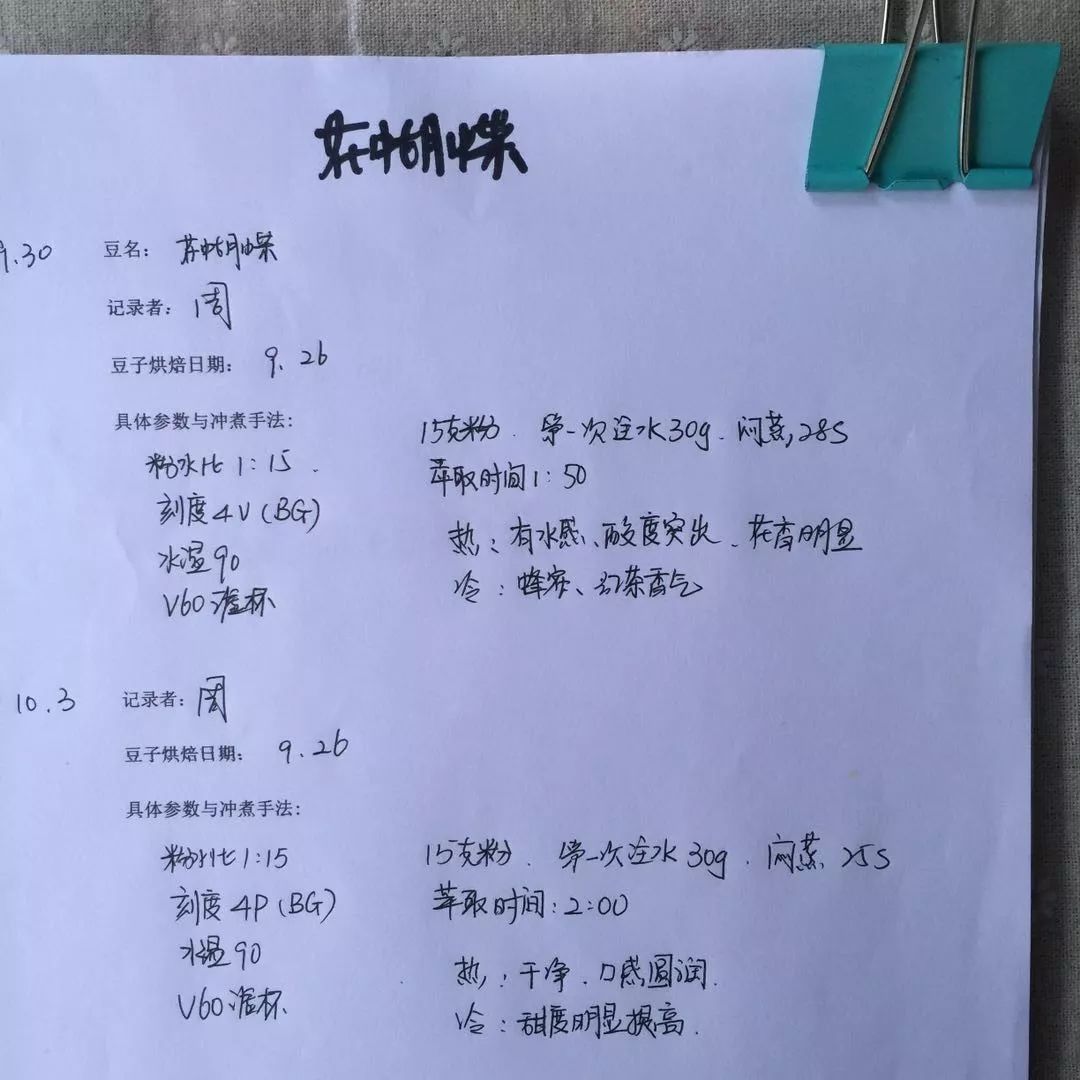 花中蝴蝶
9.30 豆名: 花中蝴蝶
记录者: 周
豆子烘焙日期: 9.26
具体参数与冲煮手法:
粉水比 1:15.
刻度4V(BG)
水温90
V60滤杯
15克粉. 第一次注水30g. 闷蒸,28S
萃取时间1:50
热: 有水感、酸度突出、花香明显
冷: 蜂蜜、红茶香气
10.3 记录者: 周
豆子烘焙日期: 9.26
具体参数与冲煮手法:
粉水比1:15
刻度4P(BG)
水温90
V60滤杯
15克粉. 第一次注水30g. 闷蒸 25S
萃取时间:2:00
热: 干净. 口感圆润.
冷: 甜度明显提高.